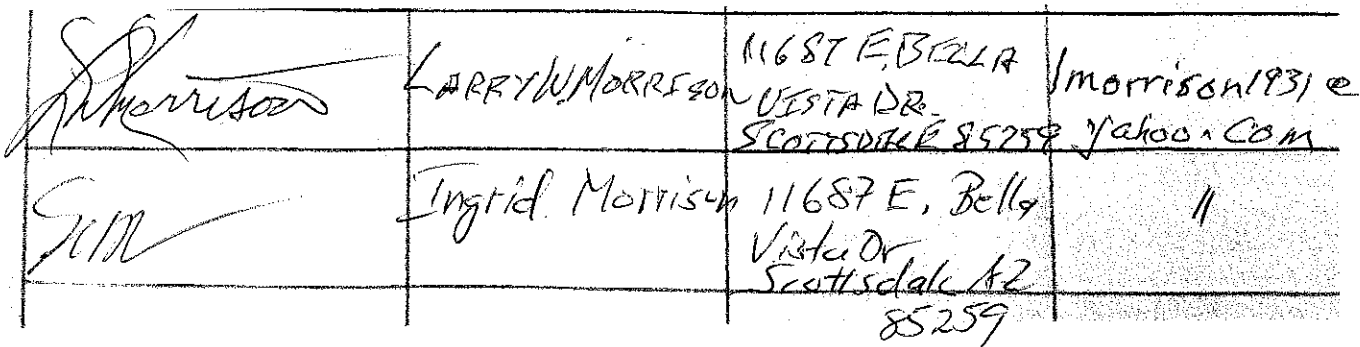 LWMorrison
LARRY W. MORRISON
11687 E. BELLA
VISTA DR.
SCOTTSDALE 85259
lmorrison1931@
yahoo.com
Ingrid Morrison
11687 E. Bella
Vista Dr
Scottsdale AZ
85259
"